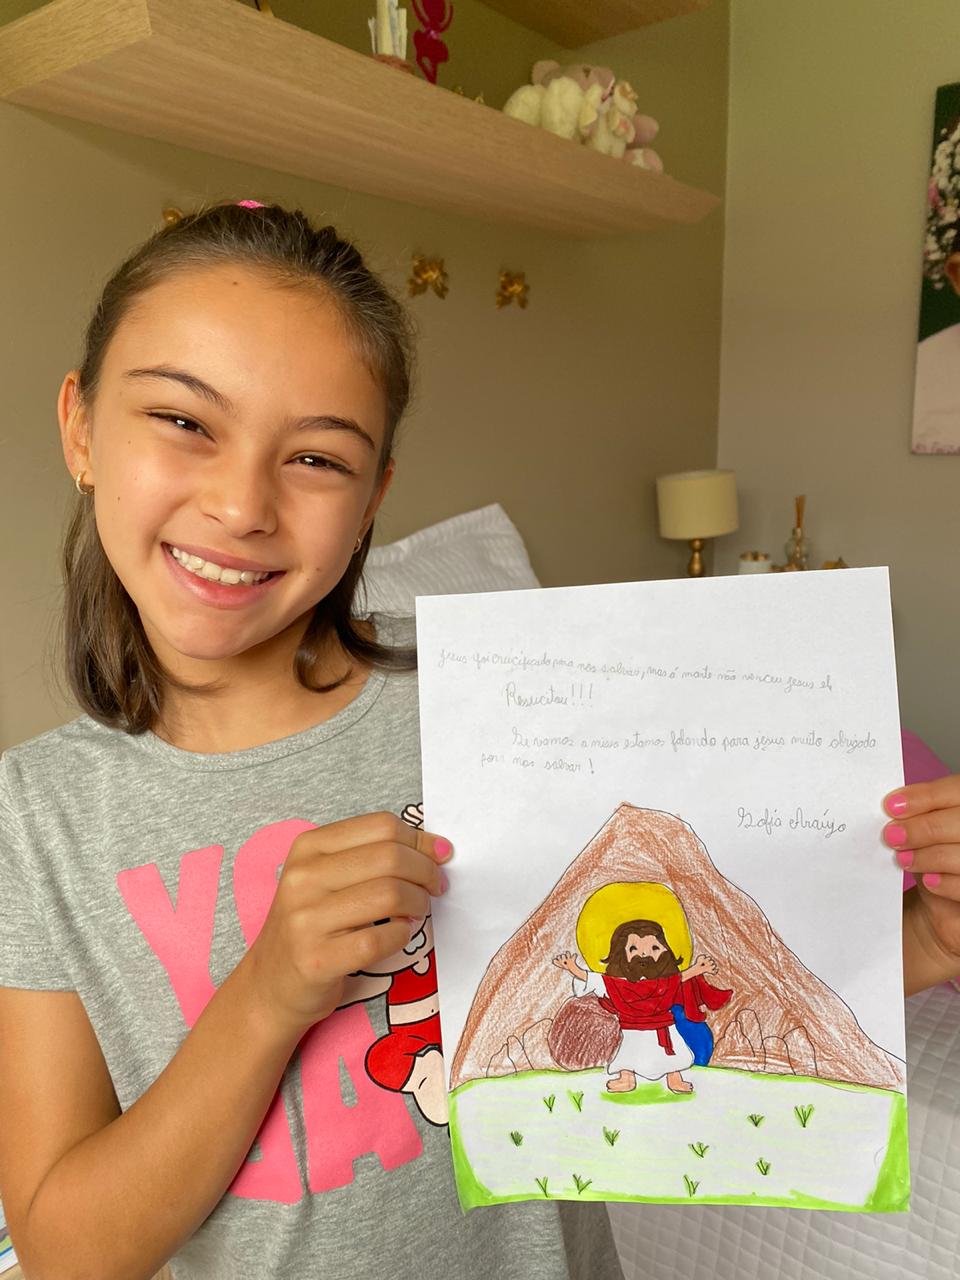 Jesus foi crucificado para nos salvar, mas á morte não venceu jesus ele
Ressucitou!!!
Se vamos a missa estamos falando para jesus muito obrigada
por nos salvar!
Sofia Araújo
YO
GA